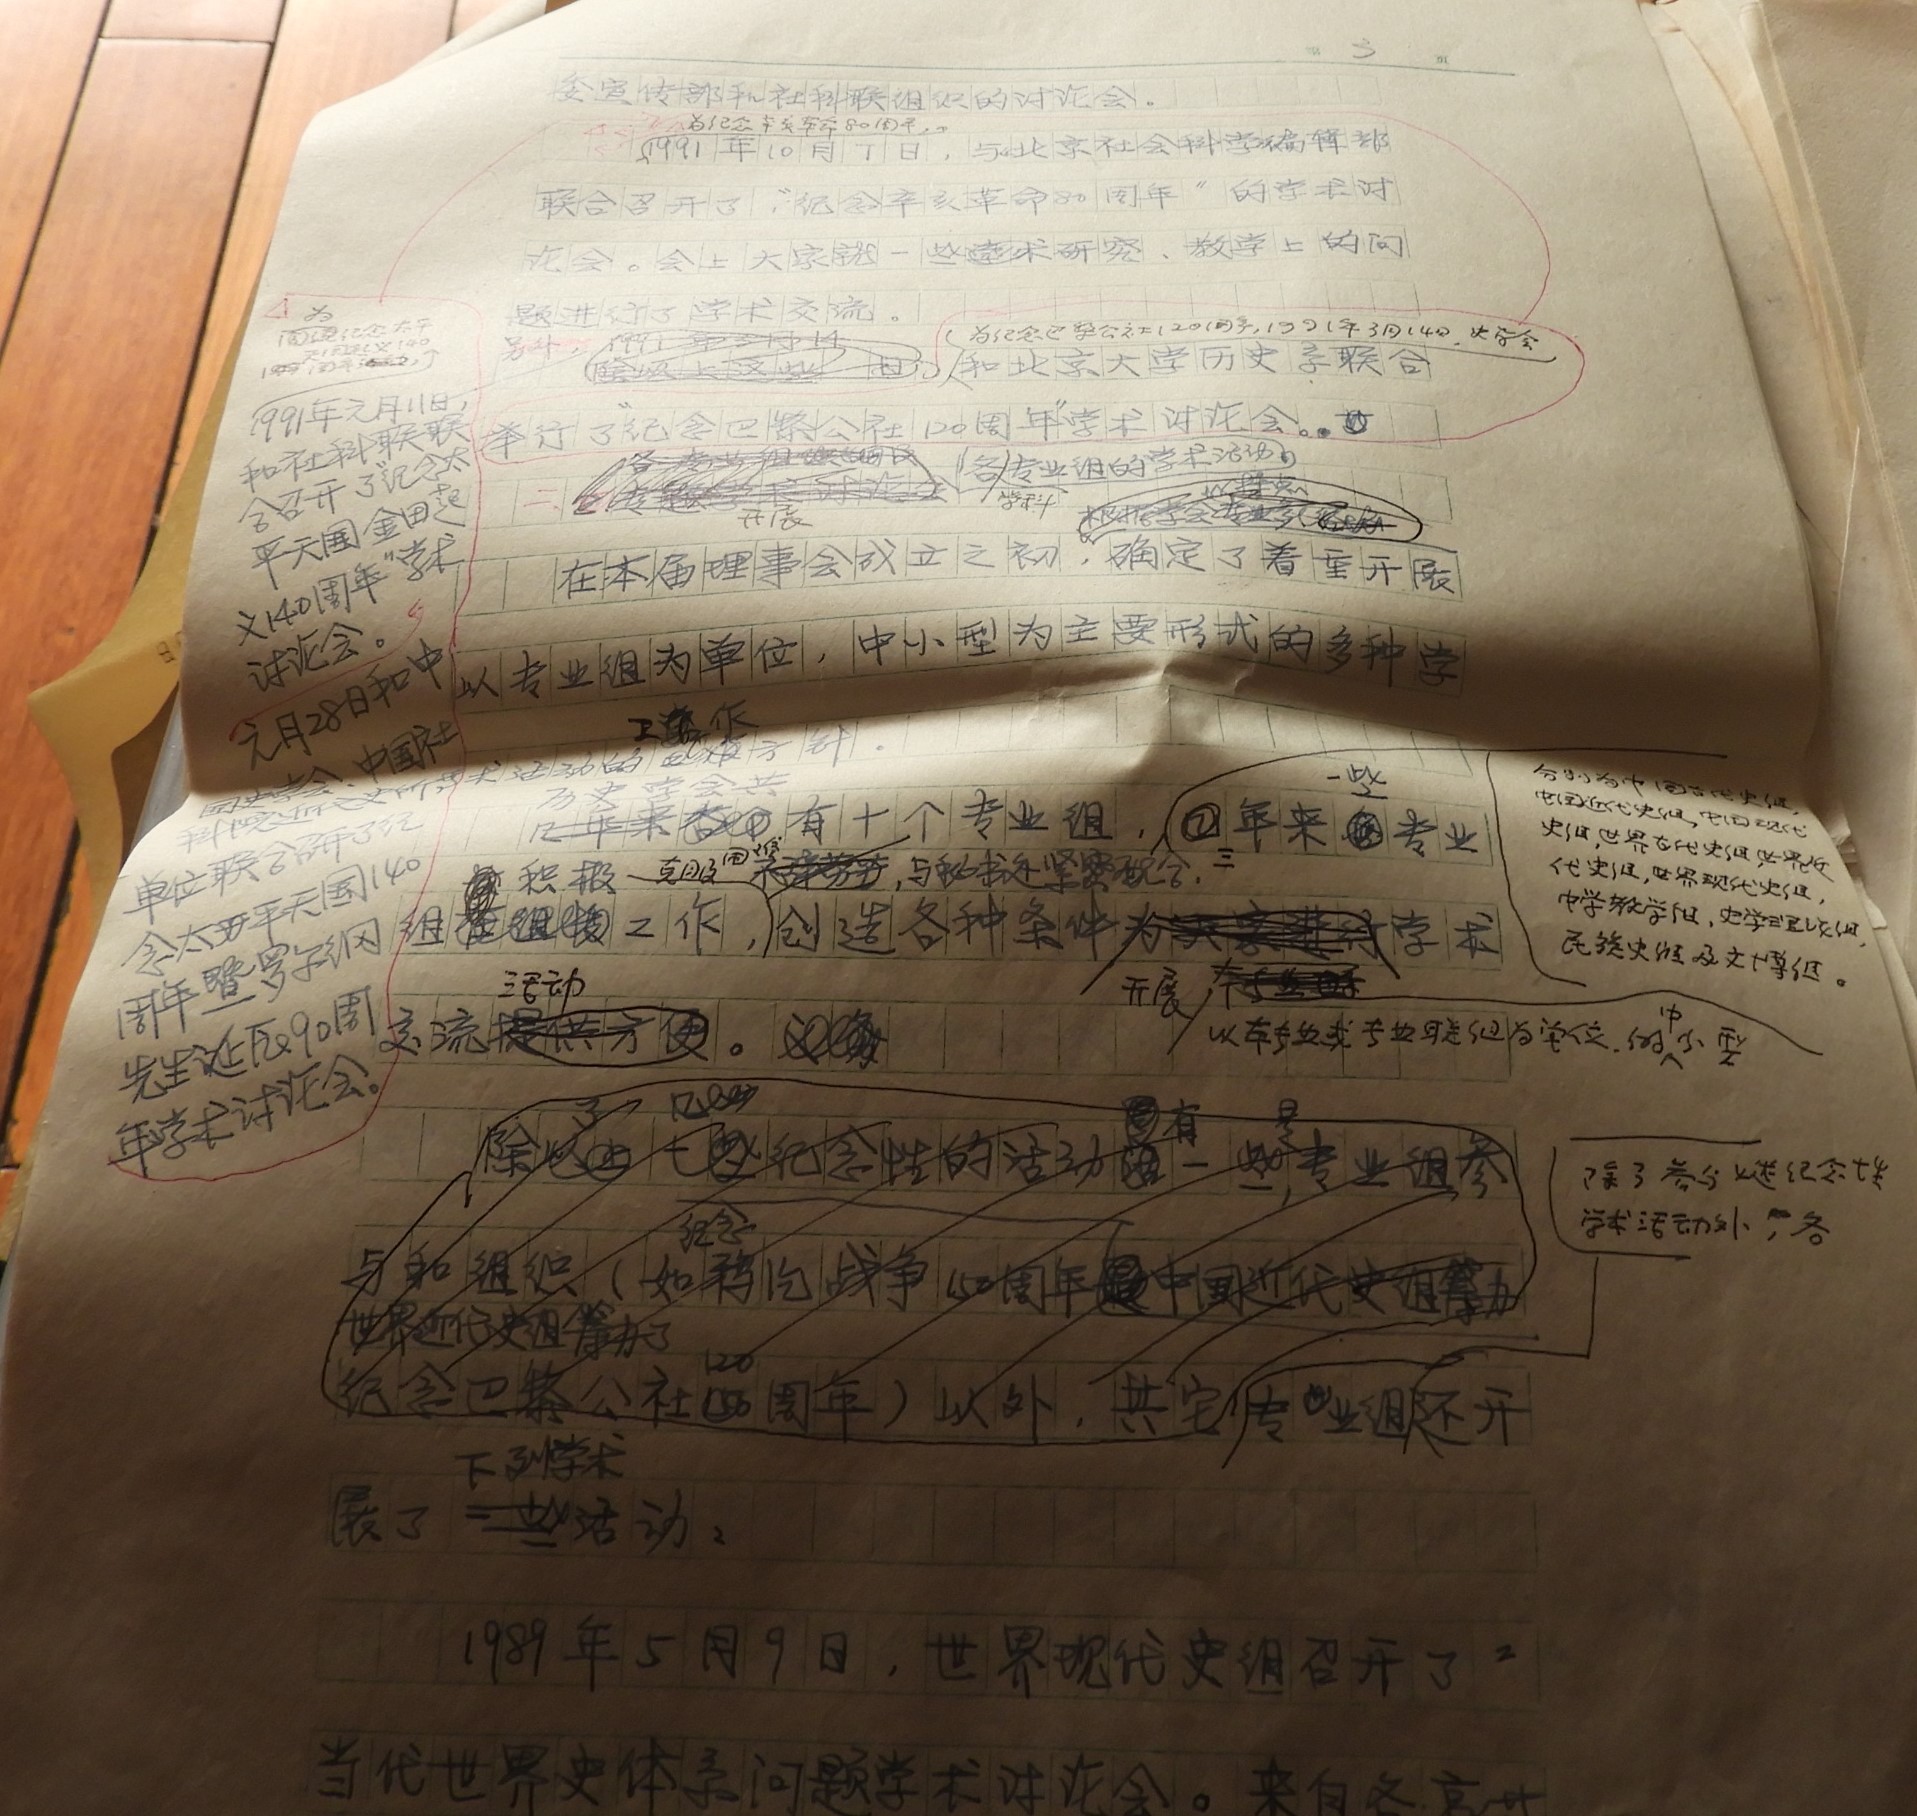 第 3 页
委宣传部和社科联组织的讨论会。
为纪念辛亥革命80周年,
1991年10月7日,与北京社会科学编辑部
联合召开了“纪念辛亥革命80周年”的学术讨
论会。会上大家就一些学术研究、教学上的问
题进行了学术交流。
为纪念巴黎公社120周年,1991年3月14日,史学会
另外,
和北京大学历史系联合
举行了“纪念巴黎公社120周年”学术讨论会。
各专业组的学术活动
学科
开展
在本届理事会成立之初,确定了着重开展
以专业组为单位,中小型为主要形式的多种学
工作
术活动的 方针。
历史学会共
有十个专业组,三年来一些专业
积极 克服困难 ,与秘书处紧密配合,
组 工作,创造各种条件为 学术
开展
活动
交流 。
以本专业或专业联组为单位的中小型
除了 纪念性的活动 有一些是专业组参
与和组织(如纪念鸦片战争150周年 中国近代史组筹办
世界近代史组筹办了
纪念巴黎公社120周年)以外,其它专业组还开
下列学术
展了一些活动:
1989年5月9日,世界现代史组召开了“
当代世界史体系问题学术讨论会。来自各高
为
纪念太平
1991年元月11日,
和社科联联
合召开了“纪念太
平天国金田起
义140周年”学术
讨论会。
元月28日和中
国史学会、中国社
科院近代史所
单位联合召开了纪
念太平天国140
周年暨罗尔纲
先生诞辰90周
年学术讨论会。
分别为中国古代史组,
中国近代史组,中国现代
史组,世界古代史组,世界近
代史组,世界现代史组,
中学教学组,史学理论组,
民族史组及文博组。
除了参与上述纪念性
学术活动外,各